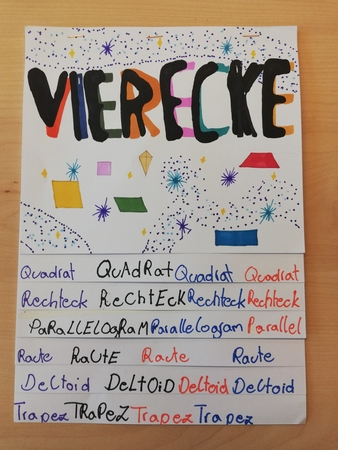 VIERECKE
Quadrat QuAdRat Quadrat Quadrat
Rechteck ReChtEck Rechteck Rechteck
PaRaLLELOgRaM Parallelogram Parallel
Raute RaUtE Raute Raute
Deltoid DeLtOiD Deltoid Deltoid
Trapez TRaPeZ Trapez Trapez